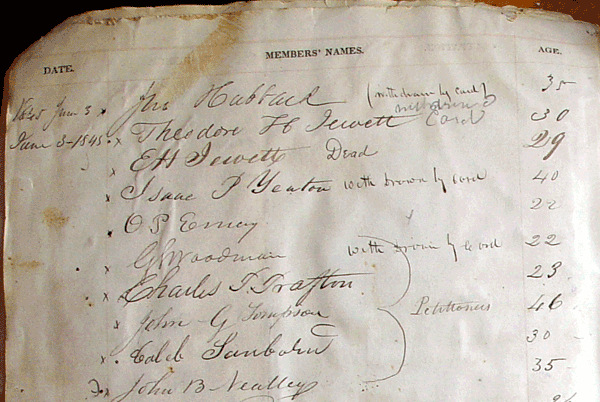 DATE. MEMBERS' NAMES. AGE.
June 3 Jno Hubbard (withdrawn by card) 35
June 3-1845 Theodore H Jewett withdrawn Card 30
E H Jewett Dead 29
Isaac P Yeaton with drawn by card 40
O P Emery 22
G Woodman with drawn by card 22
Charles T Trafton 23
John G Tompson Petitioners 46
Caleb Sanborn 30
John B Nealley 35